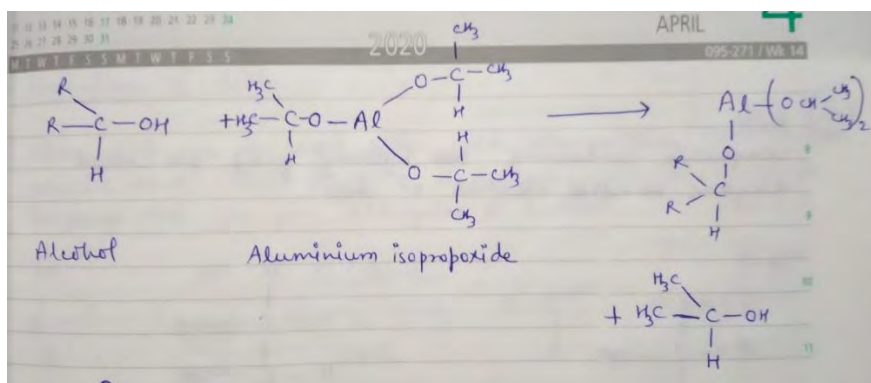 11 12 13 14 15 16 17 18 19 20 21 22 23 24
25 26 27 28 29 30 31
M T W T F S S M T W T F S S
2020
APRIL
4
095-271 / Wk 14
R
R—C—OH
H
+
H₃C
H₃C—C—O—Al
H
CH₃
O—C—CH₃
H
H
O—C—CH₃
CH₃
Al—(OCH CH₃ CH₃)₂
O
R
R C
H
Alcohol
Aluminium isopropoxide
H₃C
+ H₃C—C—OH
H
8
9
10
11